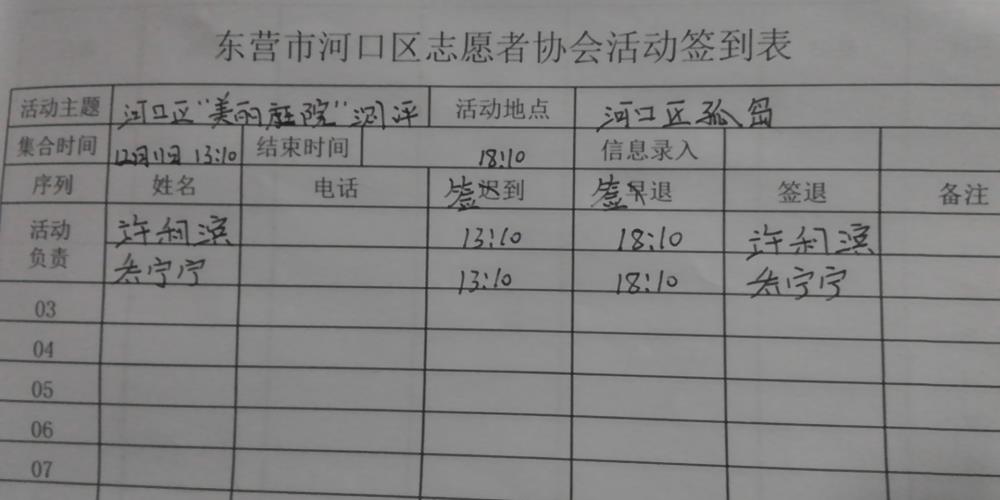 东营市河口区志愿者协会活动签到表
活动主题 河口区"美丽庭院"测评 活动地点 河口区孤岛
集合时间 12月11日 13:10 结束时间 18:10 信息录入
序列 姓名 电话 签到 签退 签退 备注
活动负责 许利滨 13:10 18:10 许利滨
宁宁 13:10 18:10 宁宁
03
04
05
06
07